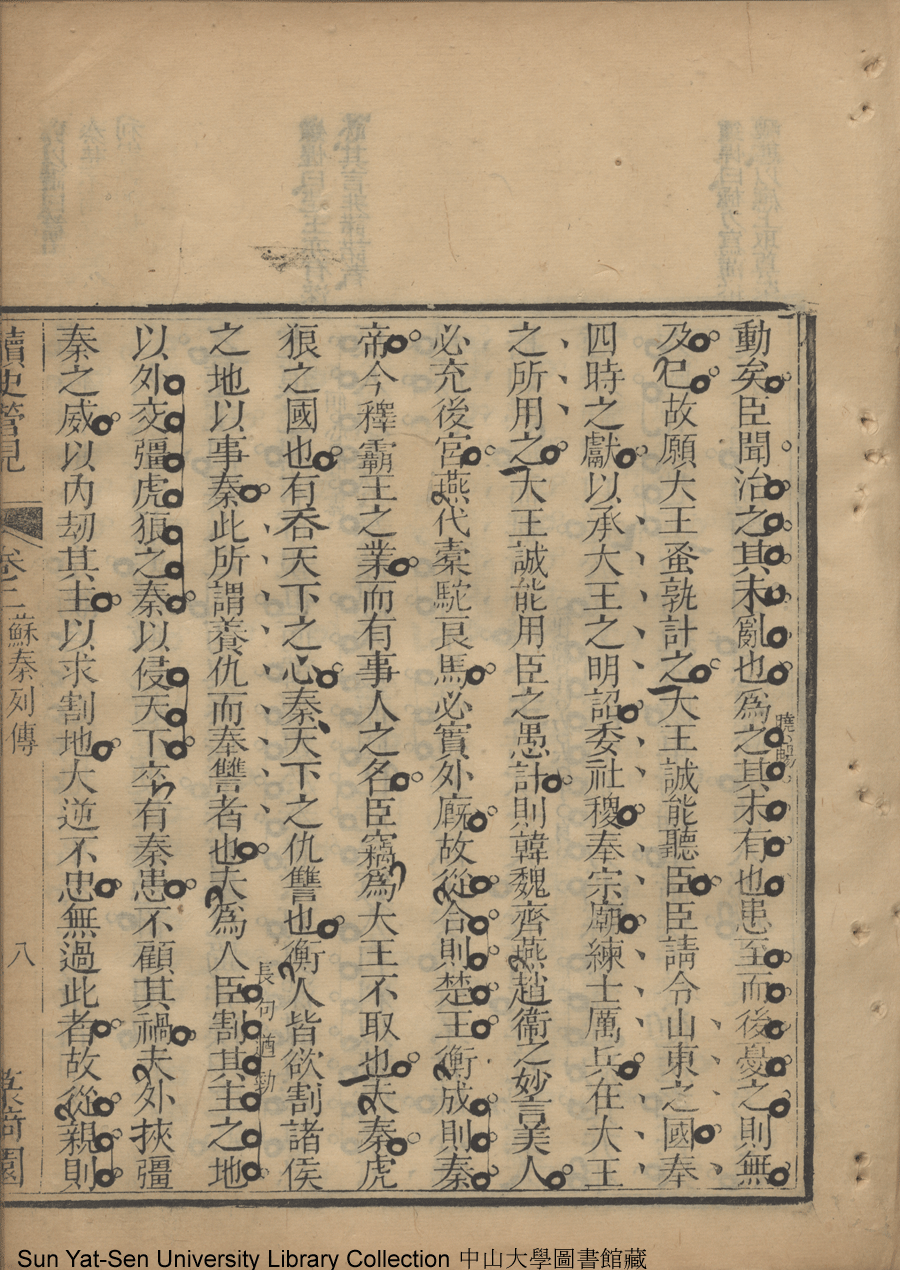 動矣臣聞治之其未亂也爲之其未有也患至而後憂之則無
曉暢
及已故願大王蚤孰計之大王誠能聽臣臣請令山東之國奉
四時之獻以承大王之明詔委社稷奉宗廟練士厲兵在大王
之所用之大王誠能用臣之愚計則韓魏齊燕趙衞之妙音美人
必充後宮燕代橐駝良馬必實外廐故從合則楚王衡成則秦
帝今釋霸王之業而有事人之名臣竊爲大王不取也夫秦虎
狼之國也有吞天下之心秦天下之仇讐也衡人皆欲割諸侯
長句遒勁
之地以事秦此所謂養仇而奉讐者也夫爲人臣割其主之地
以外交彊虎狼之秦以侵天下卒有秦患不顧其禍夫外挾彊
秦之威以內劫其主以求割地大逆不忠無過此者故從親則
讀史管見
卷二 蘇秦列傳
八
園
Sun Yat-Sen University Library Collection 中山大學圖書館藏